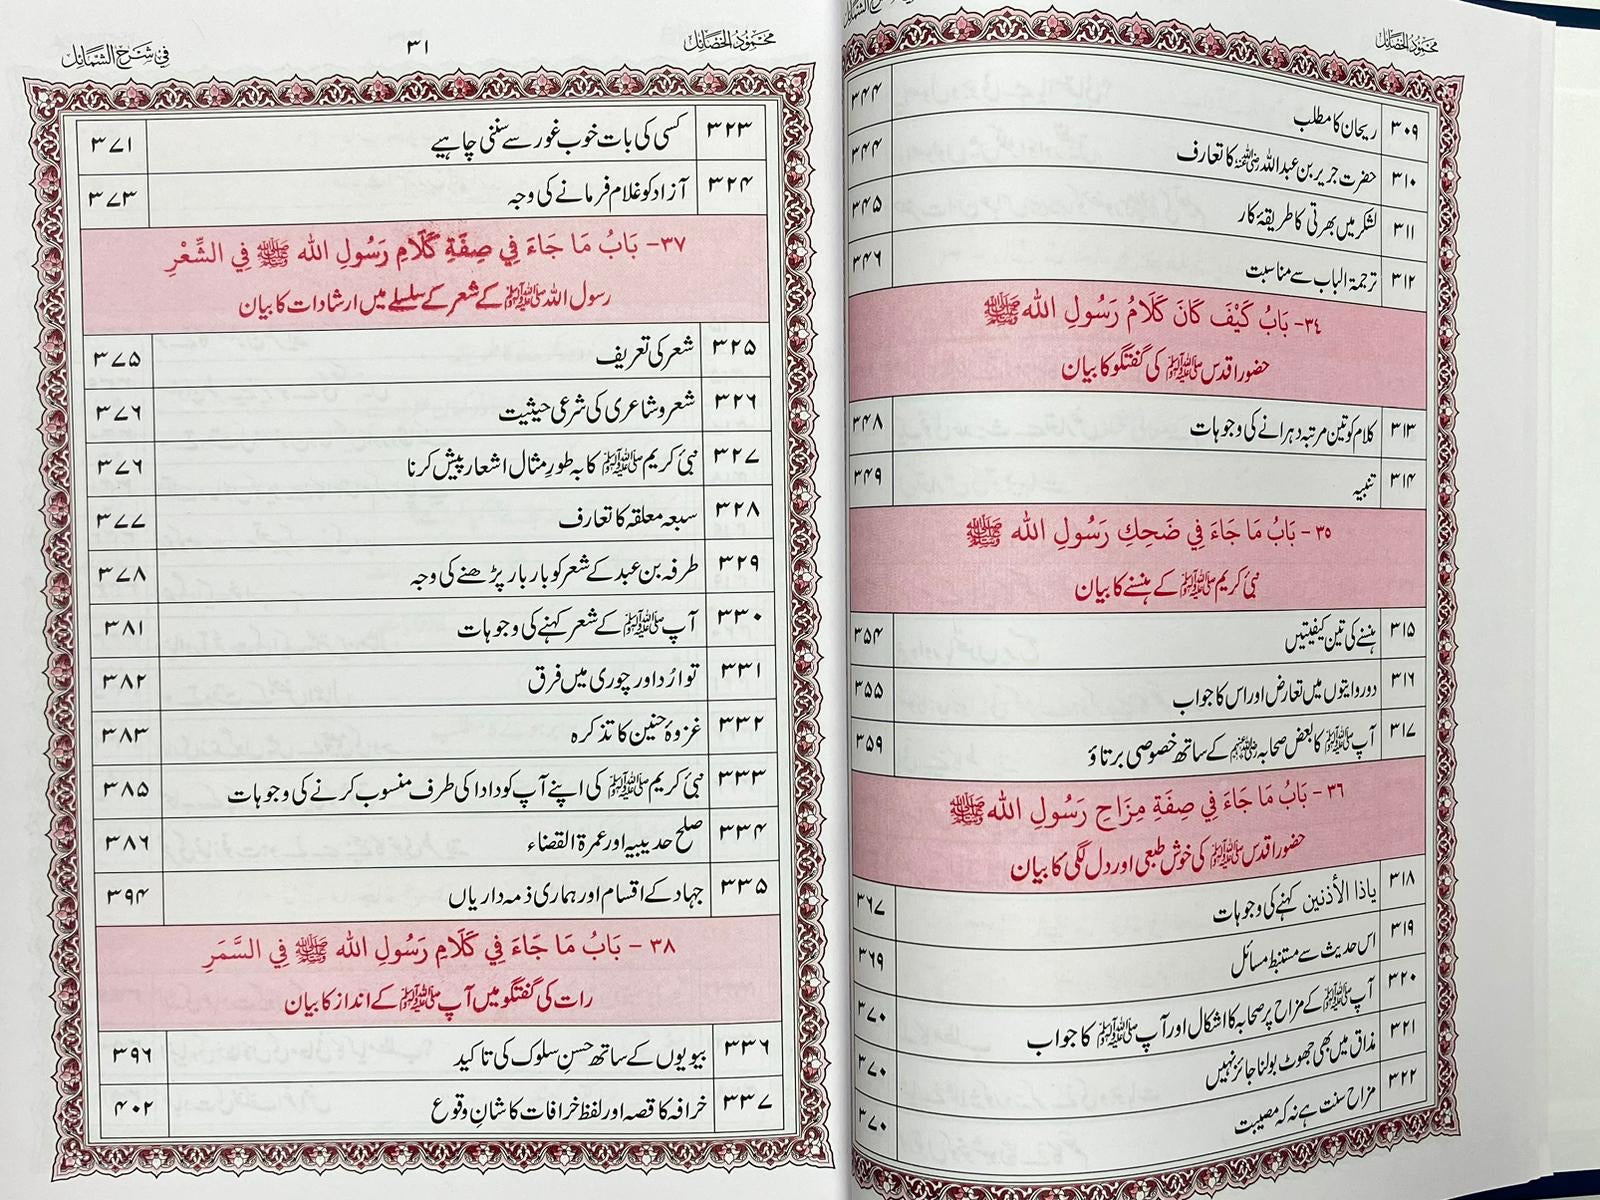 محمود الخصائل
۳۰۹ ریحان کا مطلب ۳۴۴
۳۱۰ حضرت جریر بن عبد اللہ رضی اللہ عنہ کا تعارف ۳۴۴
۳۱۱ لشکر میں بھرتی کا طریقۂ کار ۳۴۵
۳۱۲ ترجمۃ الباب سے مناسبت ۳۴۶
۳۴- بَابُ كَيْفَ كَانَ كَلَامُ رَسُولِ الله ﷺ
حضور اقدس ﷺ کی گفتگو کا بیان
۳۱۳ کلام کو تین مرتبہ دہرانے کی وجوہات ۳۴۸
۳۱۴ تنبیہ ۳۴۹
۳۵ - بَابُ مَا جَاءَ فِي ضَحِكِ رَسُولِ الله ﷺ
نبیٔ کریم ﷺ کے ہنسنے کا بیان
۳۱۵ ہنسنے کی تین کیفیتیں ۳۵۴
۳۱۶ دو روایتوں میں تعارض اور اس کا جواب ۳۵۵
۳۱۷ آپ ﷺ کا بعض صحابہ رضی اللہ عنہم کے ساتھ خصوصی برتاؤ ۳۵۹
۳۶ - بَابُ مَا جَاءَ فِي صِفَةِ مِزَاحِ رَسُولِ الله ﷺ
حضور اقدس ﷺ کی خوش طبعی اور دل لگی کا بیان
۳۱۸ یاذا الأذنین کہنے کی وجوہات ۳۶۷
۳۱۹ اس حدیث سے مستنبط مسائل ۳۶۹
۳۲۰ آپ ﷺ کے مزاح پر صحابہ کا اشکال اور آپ ﷺ کا جواب ۳۷۰
۳۲۱ مذاق میں بھی جھوٹ بولنا جائز نہیں ۳۷۰
۳۲۲ مزاح سنت ہے نہ کہ مصیبت ۳۷۰
محمود الخصائل ۳۱ في شرح الشمائل
۳۲۳ کسی کی بات خوب غور سے سننی چاہیے ۳۷۱
۳۲۴ آزاد کو غلام فرمانے کی وجہ ۳۷۳
۳۷- بَابُ مَا جَاءَ فِي صِفَةِ كَلَامِ رَسُولِ الله ﷺ فِي الشِّعْرِ
رسول اللہ ﷺ کے شعر کے سلسلے میں ارشادات کا بیان
۳۲۵ شعر کی تعریف ۳۷۵
۳۲۶ شعر و شاعری کی شرعی حیثیت ۳۷۶
۳۲۷ نبیٔ کریم ﷺ کا بہ طورِ مثال اشعار پیش کرنا ۳۷۶
۳۲۸ سبعہ معلقہ کا تعارف ۳۷۷
۳۲۹ طرفہ بن عبد کے شعر کو بار بار پڑھنے کی وجہ ۳۷۸
۳۳۰ آپ ﷺ کے شعر کہنے کی وجوہات ۳۸۱
۳۳۱ توارُد اور چوری میں فرق ۳۸۲
۳۳۲ غزوۂ حنین کا تذکرہ ۳۸۳
۳۳۳ نبیٔ کریم ﷺ کی اپنے آپ کو دادا کی طرف منسوب کرنے کی وجوہات ۳۸۵
۳۳۴ صلح حدیبیہ اور عمرۃ القضاء ۳۸۶
۳۳۵ جہاد کے اقسام اور ہماری ذمہ داریاں ۳۹۴
۳۸ - بَابُ مَا جَاءَ فِي كَلَامِ رَسُولِ الله ﷺ فِي السَّمَرِ
رات کی گفتگو میں آپ ﷺ کے انداز کا بیان
۳۳۶ بیویوں کے ساتھ حسنِ سلوک کی تاکید ۳۹۶
۳۳۷ خرافہ کا قصہ اور لفظ خرافات کا شانِ وقوع ۴۰۲